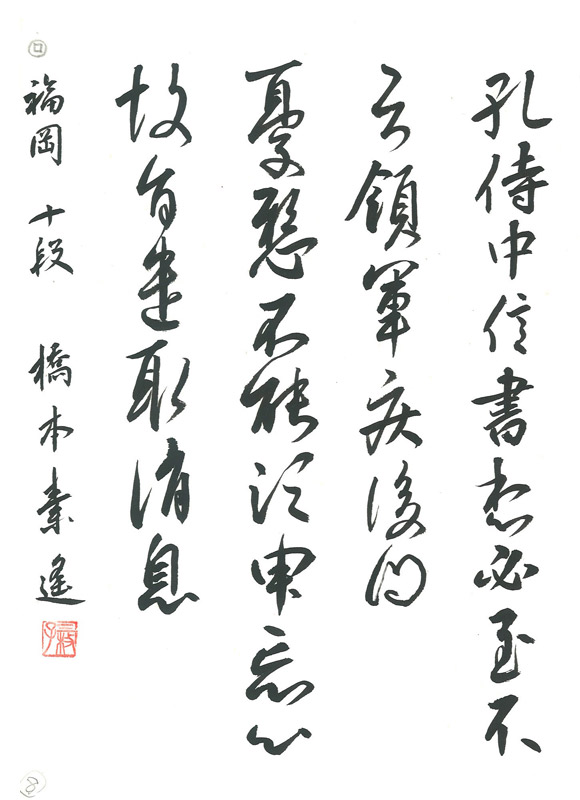 孔侍中信書想必至不
知領軍疾後問
憂懸不能須臾忘心
故旨遣取消息
福岡 十段 橋本素遙